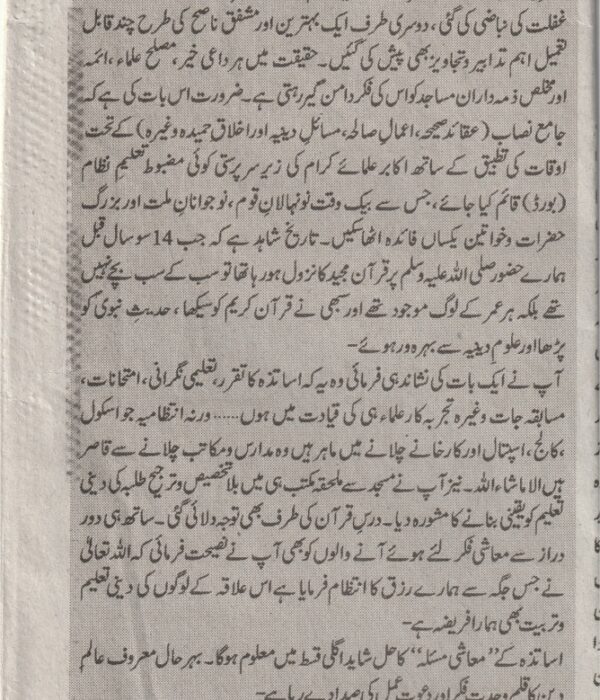 غفلت کی نباضی کی گئی، دوسری طرف ایک بہترین اور مشفق ناصح کی طرح چند قابل
تعمیل اہم تدابیر و تجاویز بھی پیش کی گئیں۔ حقیقت میں ہر داعی خیر، مصلح علماء، ائمہ
اور مخلص ذمہ داران مساجد کو اس کی فکر دامن گیر رہتی ہے۔ ضرورت اس بات کی ہے کہ
جامع نصاب (عقائد صحیحہ، اعمال صالحہ، مسائل دینیہ اور اخلاق حمیدہ وغیرہ) کے تحت
اوقات کی تطبیق کے ساتھ اکابر علمائے کرام کی زیر سرپرستی کوئی مضبوط تعلیمی نظام
(بورڈ) قائم کیا جائے، جس سے بیک وقت نونہالانِ قوم، نوجوانانِ ملت اور بزرگ
حضرات و خواتین یکساں فائدہ اٹھا سکیں۔ تاریخ شاہد ہے کہ جب 14 سو سال قبل
ہمارے حضور صلی اللہ علیہ وسلم پر قرآن مجید کا نزول ہو رہا تھا تو سب کے سب بچے نہیں
تھے بلکہ ہر عمر کے لوگ موجود تھے اور سبھی نے قرآن کریم کو سیکھا، حدیثِ نبوی کو
پڑھا اور علومِ دینیہ سے بہرہ ور ہوئے–
آپ نے ایک بات کی نشاندہی فرمائی وہ یہ کہ اساتذہ کا تقرر، تعلیمی نگرانی، امتحانات،
مسابقہ جات وغیرہ تجربہ کار علماء ہی کی قیادت میں ہوں...... ورنہ انتظامیہ جو اسکول
،کالج، اسپتال اور کارخانے چلانے میں ماہر ہیں وہ مدارس و مکاتب چلانے سے قاصر
ہیں الا ماشاء اللہ۔ نیز آپ نے مسجد سے ملحقہ مکتب ہی میں بلا تخصیص و ترجیح طلبہ کی دینی
تعلیم کو یقینی بنانے کا مشورہ دیا۔ درسِ قرآن کی طرف بھی توجہ دلائی گئی۔ ساتھ ہی دور
دراز سے معاشی فکر لئے ہوئے آنے والوں کو بھی آپ نے نصیحت فرمائی کہ اللہ تعالیٰ
نے جس جگہ سے ہمارے رزق کا انتظام فرمایا ہے اس علاقہ کے لوگوں کی دینی تعلیم
و تربیت بھی ہمارا فریضہ ہے–
اساتذہ کے ”معاشی مسئلہ“ کا حل شاید اگلی قسط میں معلوم ہوگا۔ بہرحال معروف عالم
دین کا قلم وحدت فکر اور دعوت عمل کی صدا دے رہا ہے–